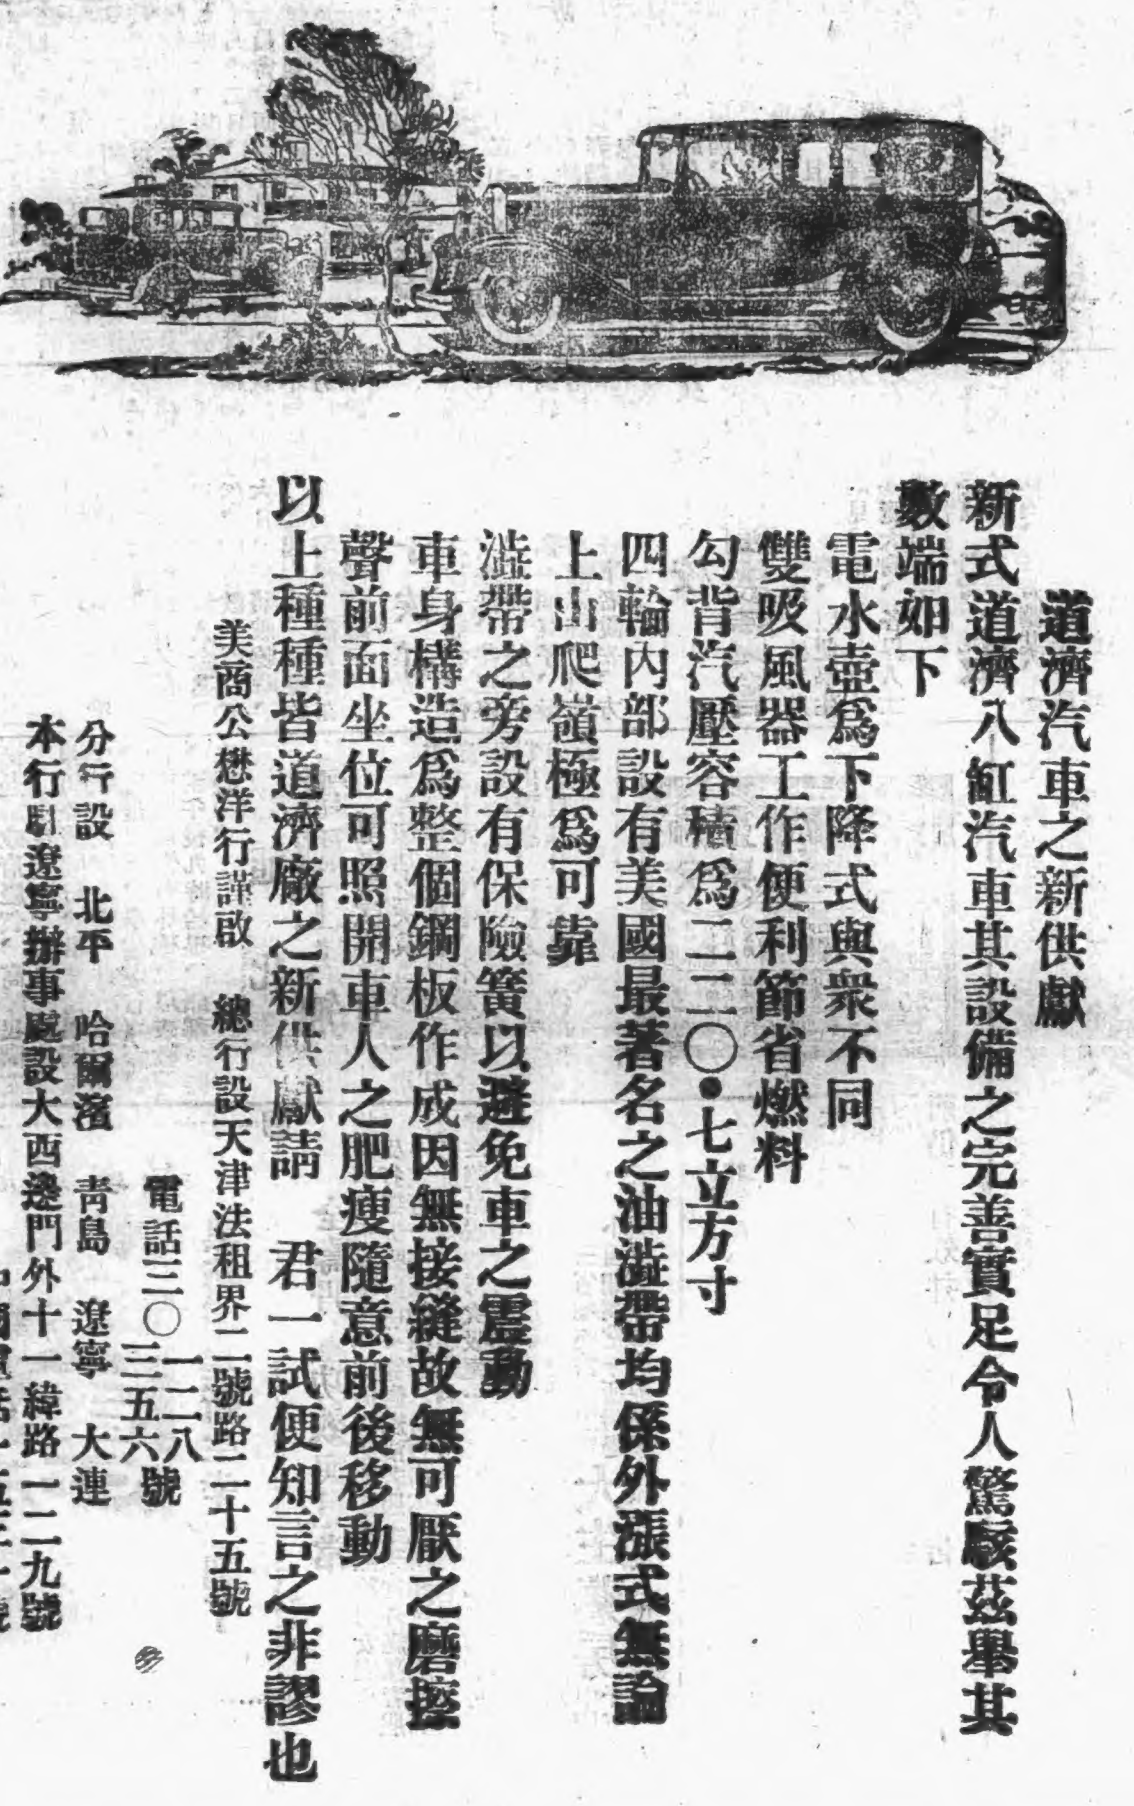 道濟汽車之新供獻
新式道濟八缸汽車其設備之完善實足令人驚駭茲舉其
數端如下
電水壺爲下降式與衆不同
雙吸風器工作便利節省燃料
勾背汽壓容積爲二二〇●七立方寸
四輪內部設有美國最著名之油澁帶均係外漲式無論
上山爬嶺極爲可靠
澁帶之旁設有保險簧以避免車之震動
車身構造爲整個鋼板作成因無接縫故無可厭之磨擦
聲前面坐位可照開車人之肥瘦隨意前後移動
以上種種皆道濟廠之新供獻請 君一試便知言之非謬也
美商公懋洋行謹啟 總行設天津法租界二號路二十五號
電話三〇
一二八
三五六
號
分行設 北平 哈爾濱 靑島 遼寧 大連
本行駐遼寧辦事處設大西邊門外十一緯路一二九號